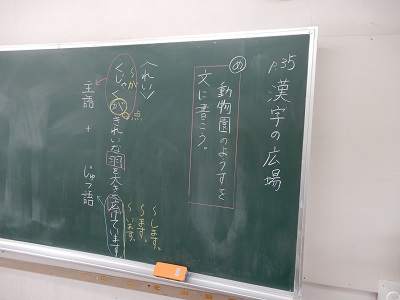 p35 漢字の広場
め
動物園のようすを
文に書こう。
〈れい〉
〜が
くじゃくが、きれいな羽を大きく広げています。
点
主語 + じゅつ語
〜します。
〜ます。
〜います。